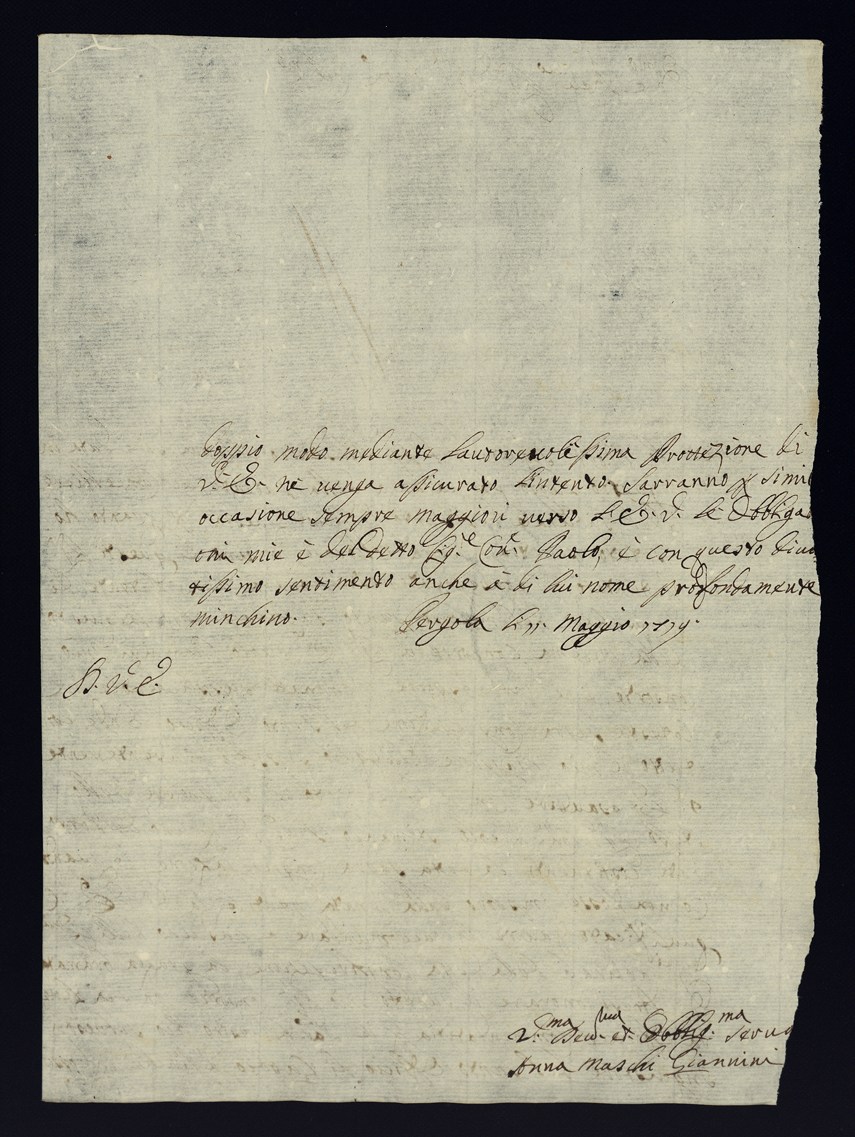 doppio modo mediante l'autorevolissima Prottezione di
V. E. nè venga assicurato l'intento. Sarranno p simil
occasione sempre maggiori verso l'E. V. le Obbliga
oni mie è del detto Sig.e Con.e Paolo, è con questo divo
tissimo sentimento anche à di lui nome profondamente
minchino. Pergola li 11 Maggio 1719.
D. V. E.
V. Dev.ma et Obblig.ma serva
Anna Maschi Giannini